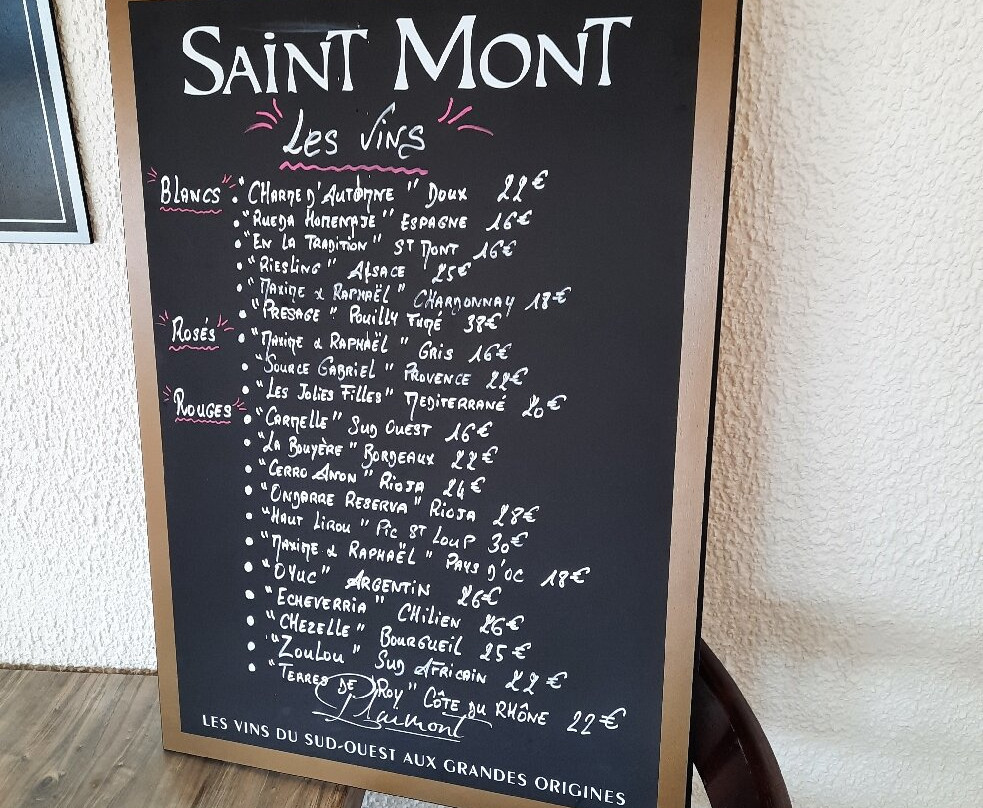 SAINT MONT
Les Vins
Blancs • "Charme d'Automne" Doux 22€
• "Rueda Homenaje" Espagne 16€
• "En La Tradition" St Mont 16€
• "Riesling" Alsace 25€
• "Maxime & Raphaël" Chardonnay 18€
• "Presage" Pouilly Fumé 38€
Rosés • "Maxime & Raphaël" Gris 16€
• "Source Gabriel" Provence 22€
• "Les Jolies Filles" Mediterrané 20€
Rouges • "Carmelle" Sud Ouest 16€
• "La Bouyère" Bordeaux 22€
• "Cerro Anon" Rioja 24€
• "Ondarre Reserva" Rioja 28€
• "Haut Lirou" Pic St Loup 30€
• "Maxime & Raphaël" Pays d'Oc 18€
• "Oyuc" Argentin 26€
• "Echeverria" Chilien 26€
• "Chezelle" Bourgueil 25€
• "Zoulou" Sud Africain 22€
• "Terres de Roy" Côte du Rhône 22€
Plaimont
LES VINS DU SUD-OUEST AUX GRANDES ORIGINES